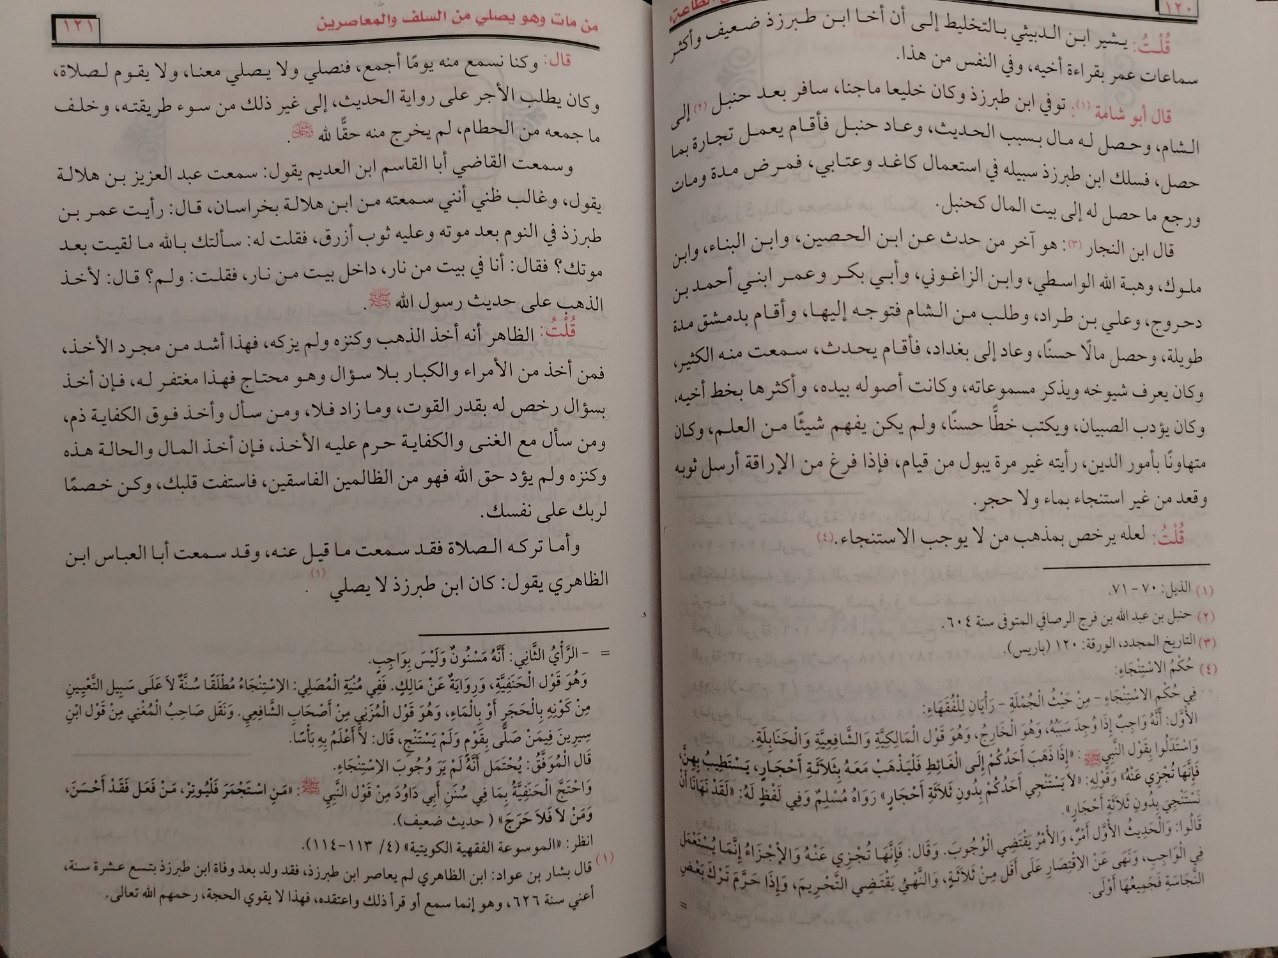 ١٢٠
قُلْتُ: يشير ابن الدبيثي بالتخليط إلى أن أخا ابن طبرزذ ضعيف وأكثر
سماعات عمر بقراءة أخيه، وفي النفس من هذا.
قال أبو شامة (١): توفي ابن طبرزذ وكان خليعا ماجنا، سافر بعد حنبل (٢) إلى
الشام، وحصل له مال بسبب الحديث، وعاد حنبل فأقام يعمل تجارة بما
حصل، فسلك ابن طبرزذ سبيله في استعمال كاغد وعتابي، فمرض مدة ومات
ورجع ما حصل له إلى بيت المال كحنبل.
قال ابن النجار (٣): هو آخر من حدث عن ابن الحصين، وابن البناء، وابن
ملوك، وهبة الله الواسطي، وابن الزاغوني، وأبي بكر وعمر ابني أحمد بن
دحروج، وعلي بن طراد، وطلب من الشام فتوجه إليها، وأقام بدمشق مدة
طويلة، وحصل مالًا حسنًا، وعاد إلى بغداد، فأقام يحدث، سمعت منه الكثير،
وكان يعرف شيوخه ويذكر مسموعاته، وكانت أصوله بيده، وأكثرها بخط أخيه،
وكان يؤدب الصبيان، ويكتب خطًّا حسنًا، ولم يكن يفهم شيئًا من العلم، وكان
متهاونًا بأمور الدين، رأيته غير مرة يبول من قيام، فإذا فرغ من الإراقة أرسل ثوبه
وقعد من غير استنجاء بماء ولا حجر.
قُلْتُ: لعله يرخص بمذهب من لا يوجب الاستنجاء. (٤)
(١) الذيل: ٧٠ - ٧١.
(٢) حنبل بن عبد الله بن فرج الرصافي المتوفى سنة ٦٠٤.
(٣) التاريخ المجدد، الورقة: ١٢٠ (باريس).
(٤) حُكْمُ الِاسْتِنْجَاءِ:
فِي حُكْمِ الِاسْتِنْجَاءِ - مِنْ حَيْثُ الْجُمْلَةِ - رَأْيَانِ لِلْفُقَهَاءِ:
الأَوَّل: أَنَّهُ وَاجِبٌ إِذَا وُجِدَ سَبَبُهُ، وَهُوَ الْخَارِجُ، وَهُوَ قَوْل الْمَالِكِيَّةِ وَالشَّافِعِيَّةِ وَالْحَنَابِلَةِ.
وَاسْتَدَلُّوا بِقَوْل النَّبِيِّ ﷺ: «إِذَا ذَهَبَ أَحَدُكُمْ إِلَى الْغَائِطِ فَلْيَذْهَبْ مَعَهُ بِثَلَاثَةِ أَحْجَارٍ، يَسْتَطِيبُ بِهِنَّ،
فَإِنَّهَا تُجْزِي عَنْهُ» وَقَوْلِهِ: «لاَ يَسْتَنْجِي أَحَدُكُمْ بِدُونِ ثَلاَثَةِ أَحْجَارٍ» رَوَاهُ مُسْلِمٌ وَفِي لَفْظٍ لَهُ: «لَقَدْ نَهَانَا أَنْ
نَسْتَنْجِيَ بِدُونِ ثَلاَثَةِ أَحْجَارٍ».
قَالُوا: وَالْحَدِيثُ الأَوَّل أَمْرٌ، وَالأَمْرُ يَقْتَضِي الْوُجُوبَ. وَقَال: فَإِنَّهَا تُجْزِي عَنْهُ وَالإِجْزَاءُ إِنَّمَا يُسْتَعْمَل
فِي الْوَاجِبِ، وَنَهَى عَنْ الاِقْتِصَارِ عَلَى أَقَل مِنْ ثَلاَثَةٍ، وَالنَّهْيُ يَقْتَضِي التَّحْرِيمَ، وَإِذَا حَرَّمَ تَرْكَ بَعْضِ
النَّجَاسَةِ فَجَمِيعُهَا أَوْلَى. =
من مات وهو يصلي من السلف والمعاصرين ١٢١
قال: وكنا نسمع منه يومًا أجمع، فنصلي ولا يصلي معنا، ولا يقوم لصلاة،
وكان يطلب الأجر على رواية الحديث، إلى غير ذلك من سوء طريقته، وخلف
ما جمعه من الحطام، لم يخرج منه حقًّا لله ﷻ.
وسمعت القاضي أبا القاسم ابن العديم يقول: سمعت عبد العزيز بن هلالة
يقول، وغالب ظني أنني سمعته من ابن هلالة بخراسان، قال: رأيت عمر بن
طبرزذ في النوم بعد موته وعليه ثوب أزرق، فقلت له: سألتك بالله ما لقيت بعد
موتك؟ فقال: أنا في بيت من نار، داخل بيت من نار، فقلت: ولم؟ قال: لأخذ
الذهب على حديث رسول الله ﷺ.
قُلْتُ: الظاهر أنه أخذ الذهب وكنزه ولم يزكه، فهذا أشد من مجرد الأخذ،
فمن أخذ من الأمراء والكبار بلا سؤال وهو محتاج فهذا مغتفر له، فإن أخذ
بسؤال رخص له بقدر القوت، وما زاد فلا، ومن سأل وأخذ فوق الكفاية ذم،
ومن سأل مع الغنى والكفاية حرم عليه الأخذ، فإن أخذ المال والحالة هذه
وكنزه ولم يؤد حق الله فهو من الظالمين الفاسقين، فاستفت قلبك، وكن خصمًا
لربك على نفسك.
وأما تركه الصلاة فقد سمعت ما قيل عنه، وقد سمعت أبا العباس ابن
الظاهري يقول: كان ابن طبرزذ لا يصلي (١).
= - الرَّأْيُ الثَّانِي: أَنَّهُ مَسْنُونٌ وَلَيْسَ بِوَاجِبٍ.
وَهُوَ قَوْل الْحَنَفِيَّةِ، وَرِوَايَةٌ عَنْ مَالِكٍ. فَفِي مُنْيَةِ الْمُصَلِي: الاِسْتِنْجَاءُ مُطْلَقًا سُنَّةٌ لاَ عَلَى سَبِيل التَّعْيِينِ
مِنْ كَوْنِهِ بِالْحَجَرِ أَوْ بِالْمَاءِ، وَهُوَ قَوْل الْمُزَنِي مِنْ أَصْحَابِ الشَّافِعِي. وَنَقَل صَاحِبُ الْمُغْنِي مِنْ قَوْل ابْنِ
سِيرِينَ فِيمَنْ صَلَّى بِقَوْمٍ وَلَمْ يَسْتَنْجِ، قَال: لاَ أَعْلَمُ بِهِ بَأْسًا.
قَال الْمُوَفَّقُ: يُحْتَمَل أَنَّهُ لَمْ يَرَ وُجُوبَ الاِسْتِنْجَاءِ.
وَاحْتَجَّ الْحَنَفِيَّةُ بِمَا فِي سُنَنِ أَبِي دَاوُدَ مِنْ قَوْل النَّبِيِّ ﷺ: «مَنِ اسْتَجْمَرَ فَلْيُوتِرْ، مَنْ فَعَل فَقَدْ أَحْسَنَ،
وَمَنْ لاَ فَلاَ حَرَجَ» ( حديث ضعيف).
انظر: «الموسوعة الفقهية الكويتية» (٤/ ١١٣-١١٤).
(١) قال بشار بن عواد: ابن الظاهري لم يعاصر ابن طبرزذ، فقد ولد بعد وفاة ابن طبرزذ بتسع عشرة سنة،
أعني سنة ٦٢٦، وهو إنما سمع أو قرأ ذلك واعتقده، فهذا لا يقوي الحجة، رحمهم الله تعالى.